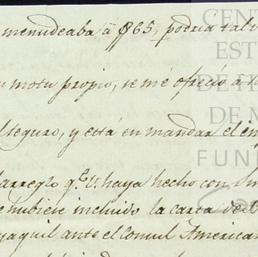 menudeaba à $865, podria tal
motu propio, se me ofreció á
seguro, y està en mandar el em
arreglo q.e V. haya hecho con
hubiese incluido la carta de
yaquil ante el Consul American
CEN
EST
DE
DE M
FUN